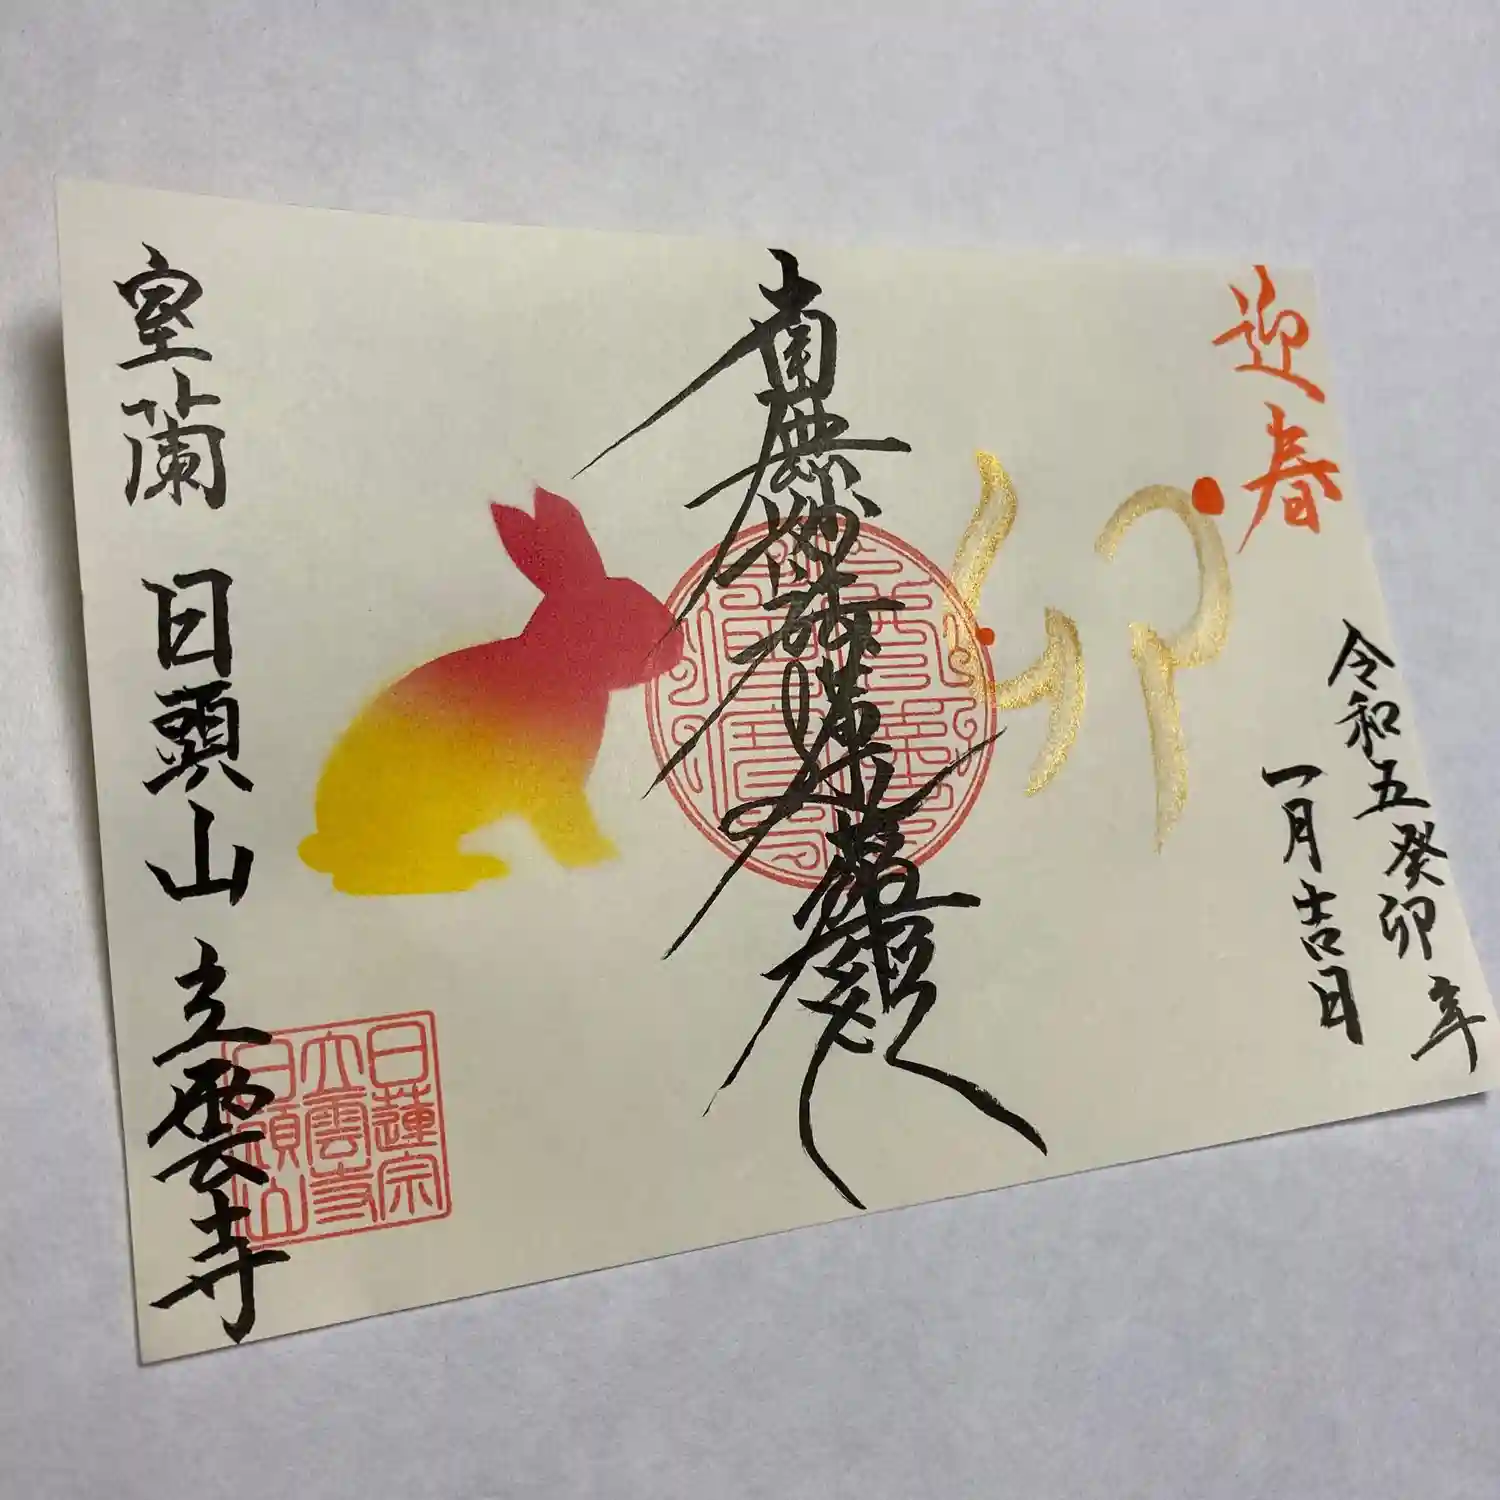 迎春
令和五癸卯年
一月吉日
卯
南無妙法蓮華経
室蘭 日頭山 立雲寺
日蓮宗
立雲寺
日頭山